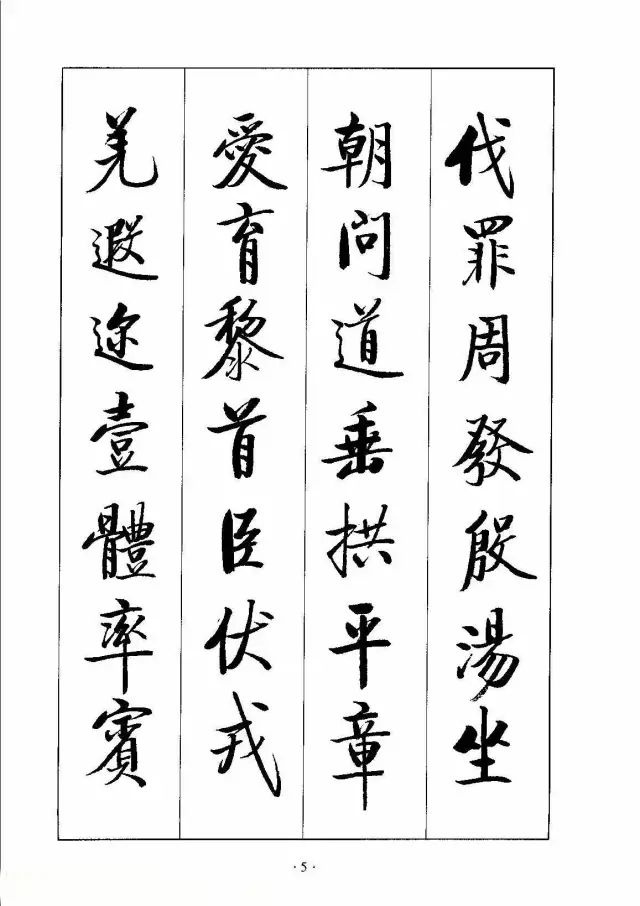 伐罪周發殷湯坐
朝問道垂拱平章
愛育黎首臣伏戎
羌遐途壹體率賓
·5·